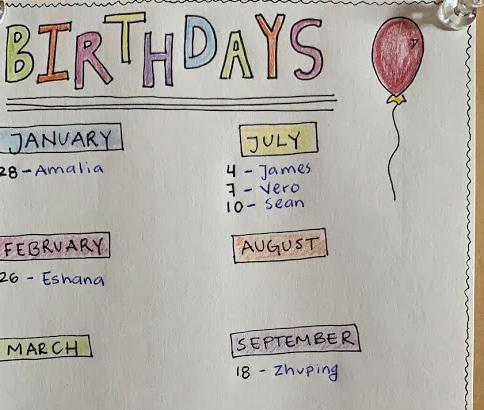 BIRTHDAYS
JANUARY
28 - Amalia
FEBRUARY
26 - Eshana
MARCH
JULY
4 - James
7 - Vero
10 - Sean
AUGUST
SEPTEMBER
18 - Zhuping